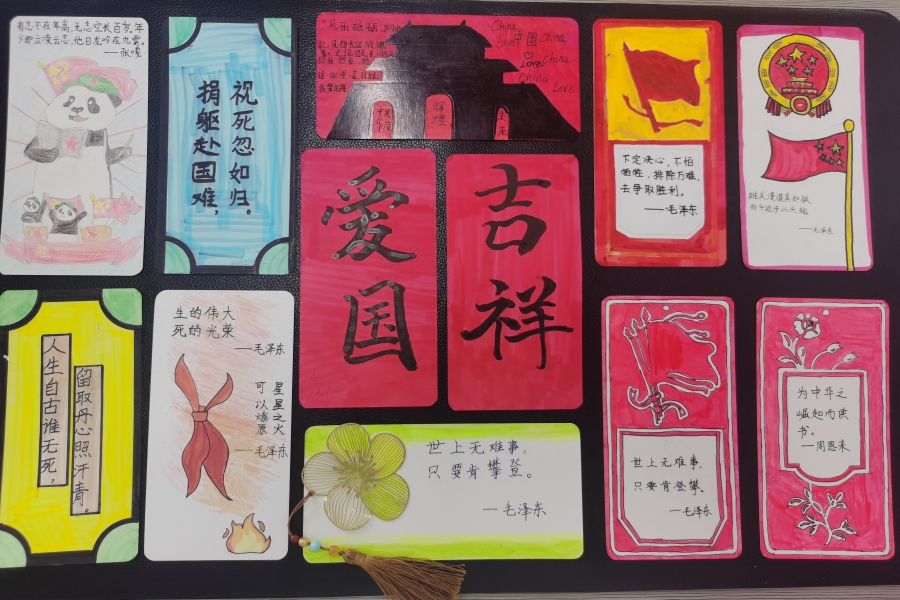 有志不在年高,无志空长百岁。年
捐躯赴国难,
视死忽如归。
China
中国 China
Love China
China
Love
辉煌
下定决心,不怕
牺牲,排除万难,
去争取胜利。
——毛泽东
雄关漫道真如铁
——毛泽东
爱国
吉祥
人生自古谁无死,
留取丹心照汗青。
生的伟大
死的光荣
——毛泽东
星星之火
可以燎原
——毛泽东
世上无难事,
只要肯攀登。
——毛泽东
世上无难事,
只要肯登攀。
——毛泽东
为中华之
崛起而读
书。
——周恩来